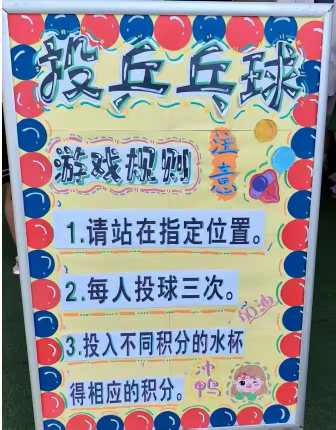 投乒乓球
游戏规则
注意
1.请站在指定位置。
2.每人投球三次。
加油
3.投入不同积分的水杯
得相应的积分。
冲鸭